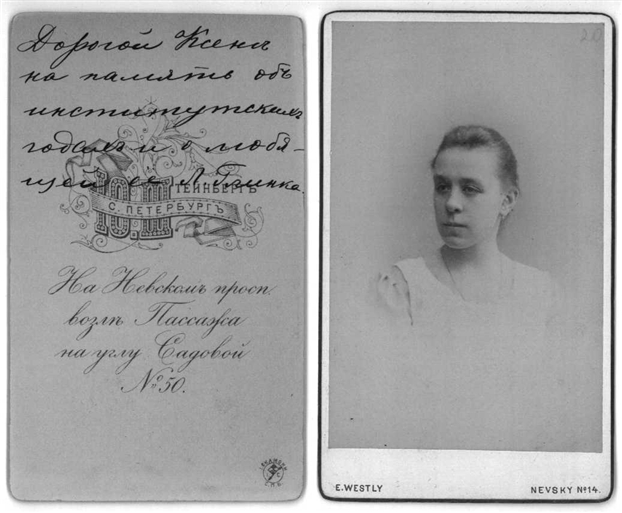 Дорогой Ксенѣ
на память объ
институтскихъ
годахъ и о любя-
щей ее Л. Глинка.
Ю. Ш
ТЕЙНБЕРГЪ
С. ПЕТЕРБУРГЪ
На Невскомъ просп
возлѣ Пассажа
на углу Садовой
№ 50.
20
E. WESTLY
NEVSKY № 14.